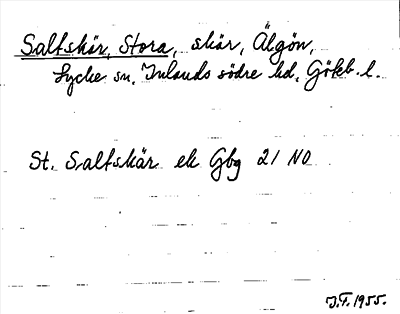 Saltskär, Stora, skär, Älgön,
Lycke sn, Inlands södre hd, Göteb. l.
St. Saltskär ek Gbg 21 NO
J.F. 1955.